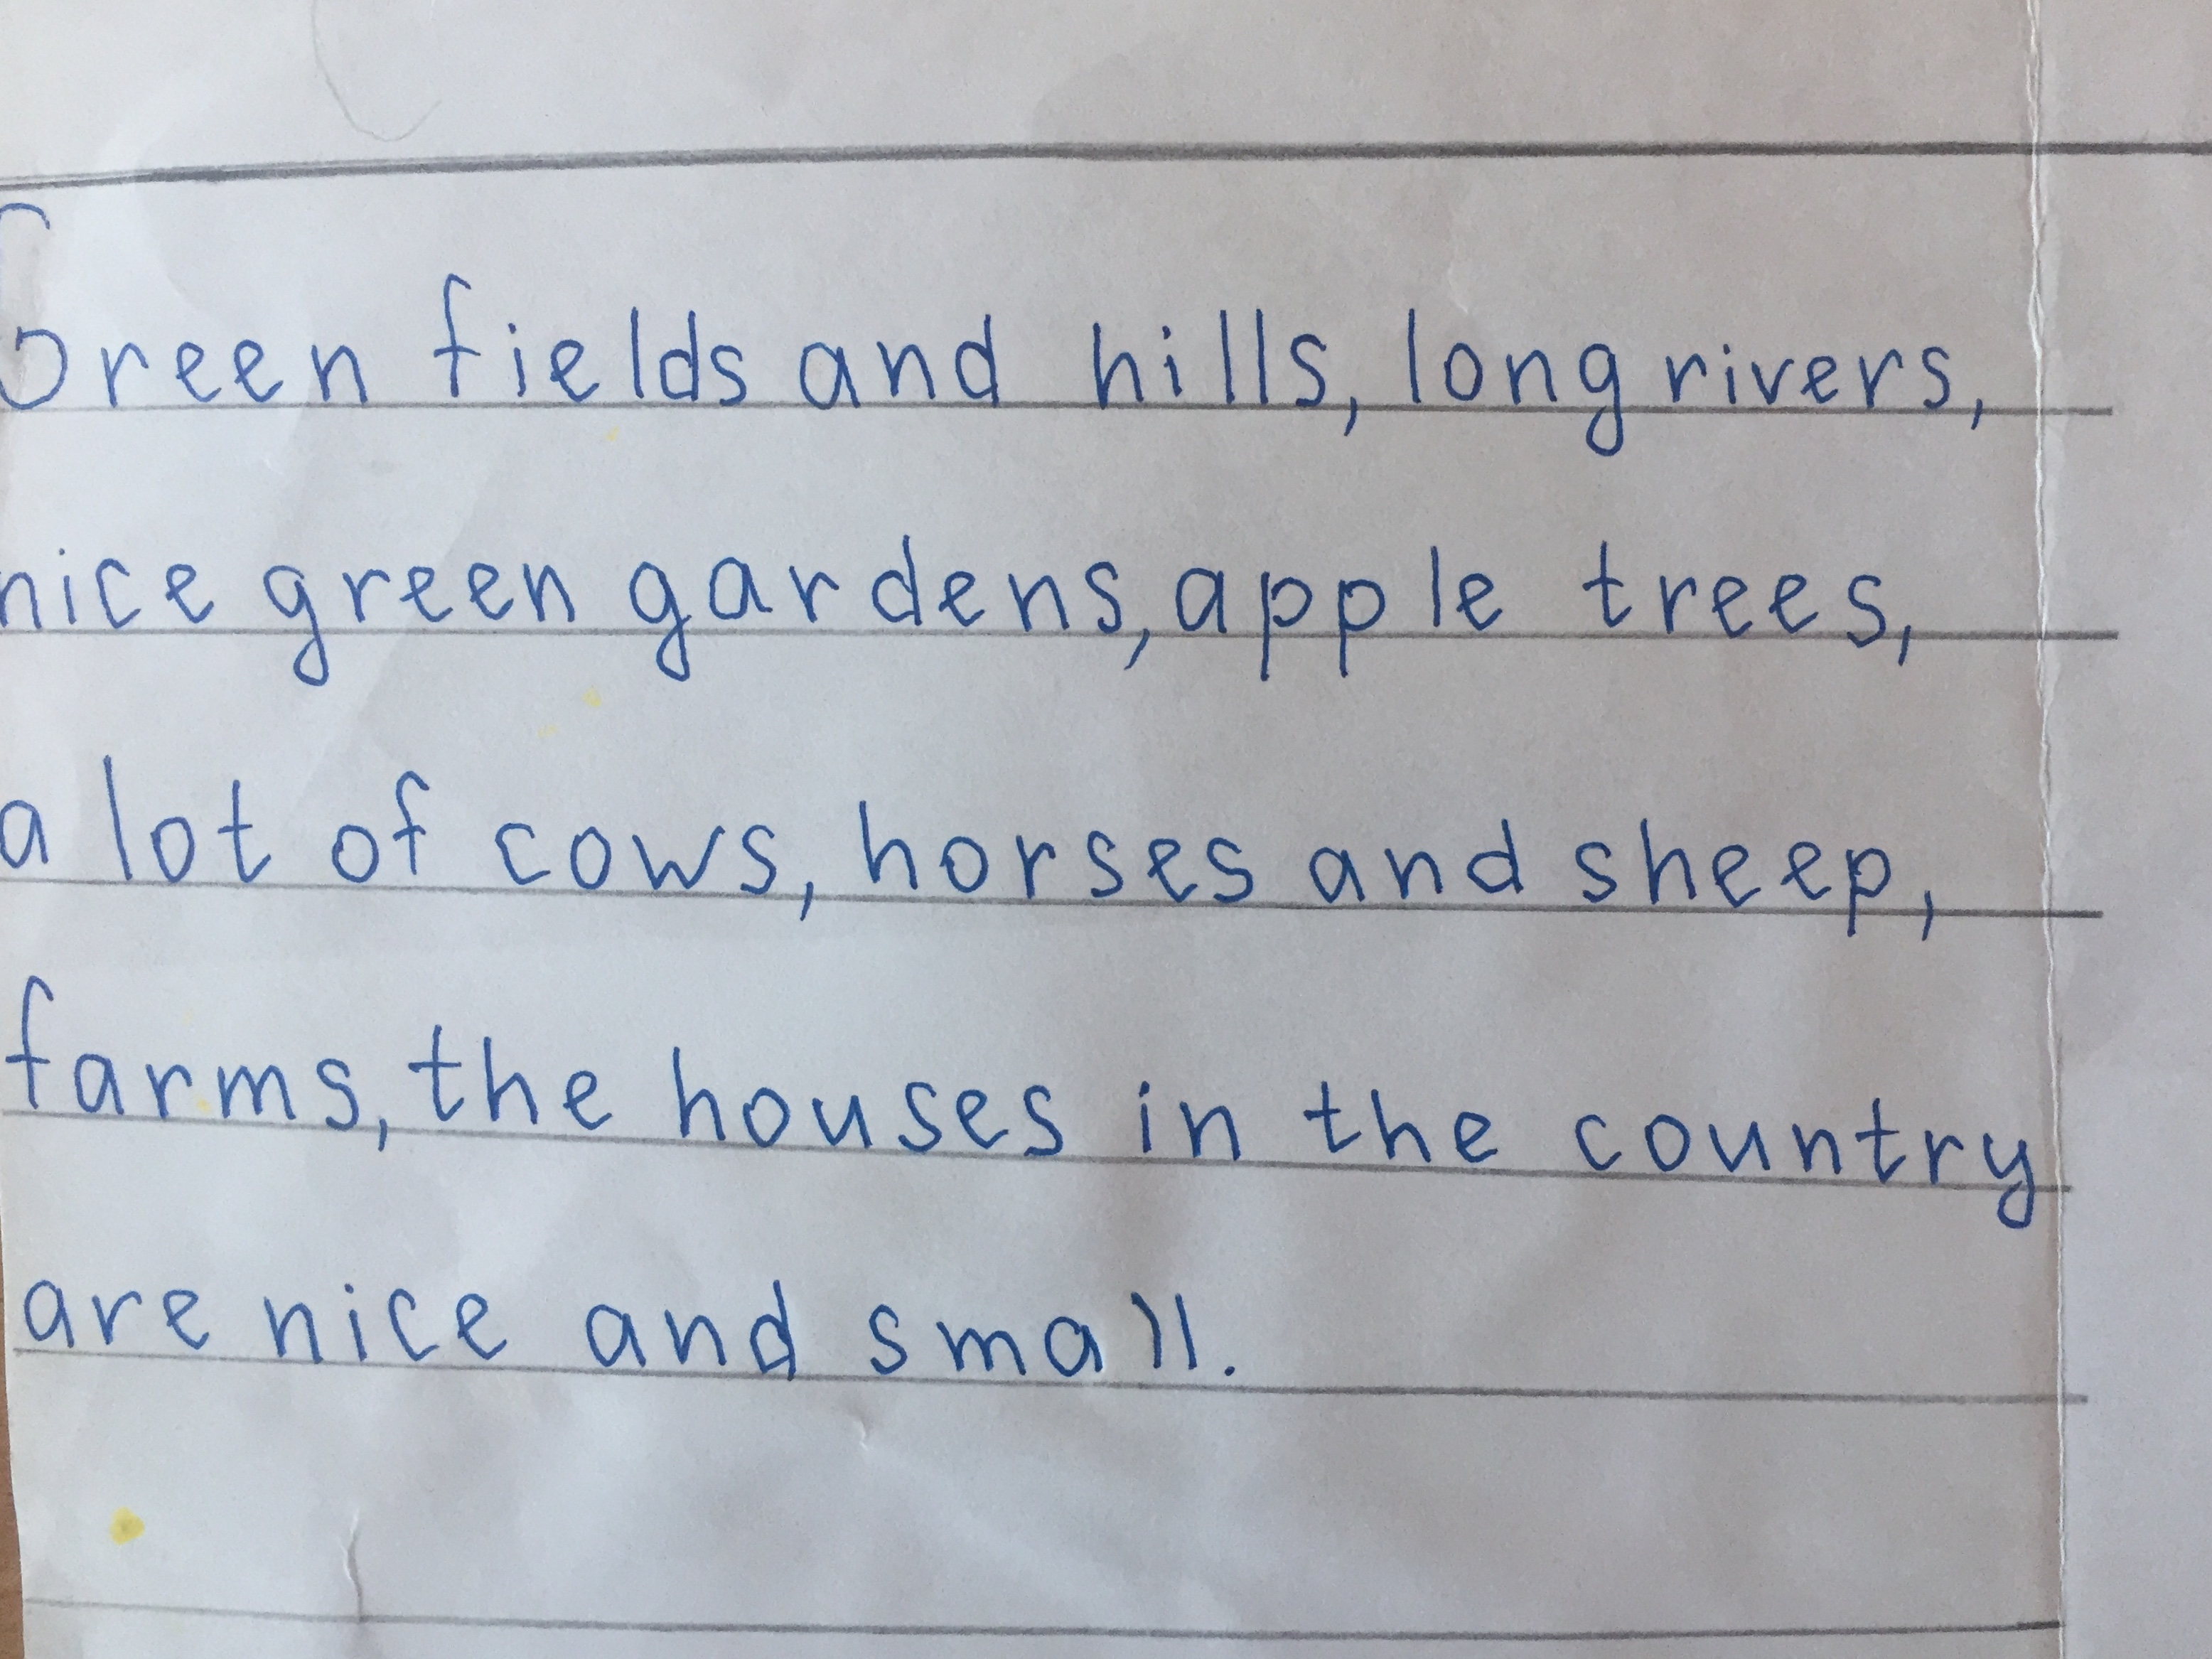 Green fields and hills, long rivers,
nice green gardens, apple trees,
a lot of cows, horses and sheep,
farms, the houses in the country
are nice and small.